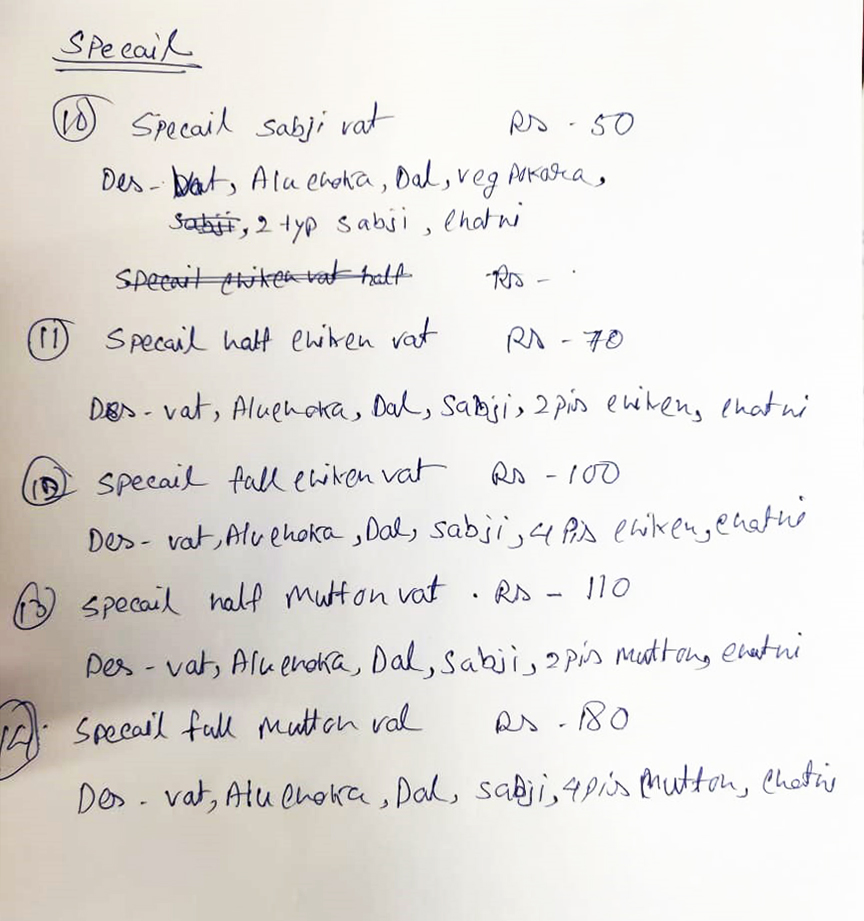 Specail
10 Specail sabji vat RS - 50
Des - vat, Alu choka, Dal, veg pokora,
sabji, 2 typ sabji, chatni
Specail chiken vat half RS -
11 Specail half chiken vat RS - 70
Des - vat, Aluchoka, Dal, Sabji, 2 pis chiken, chatni
12 specail fall chiken vat RS - 100
Des - vat, Alu choka, Dal, sabji, 4 Pis chiken, chatni
13 specail half mutton vat . RS - 110
Des - vat, Alu choka, Dal, Sabji, 2 pis mutton, chatni
14 Specail fall mutton vat RS - 180
Des - vat, Alu choka, Dal, sabji, 4 pis Mutton, chatni